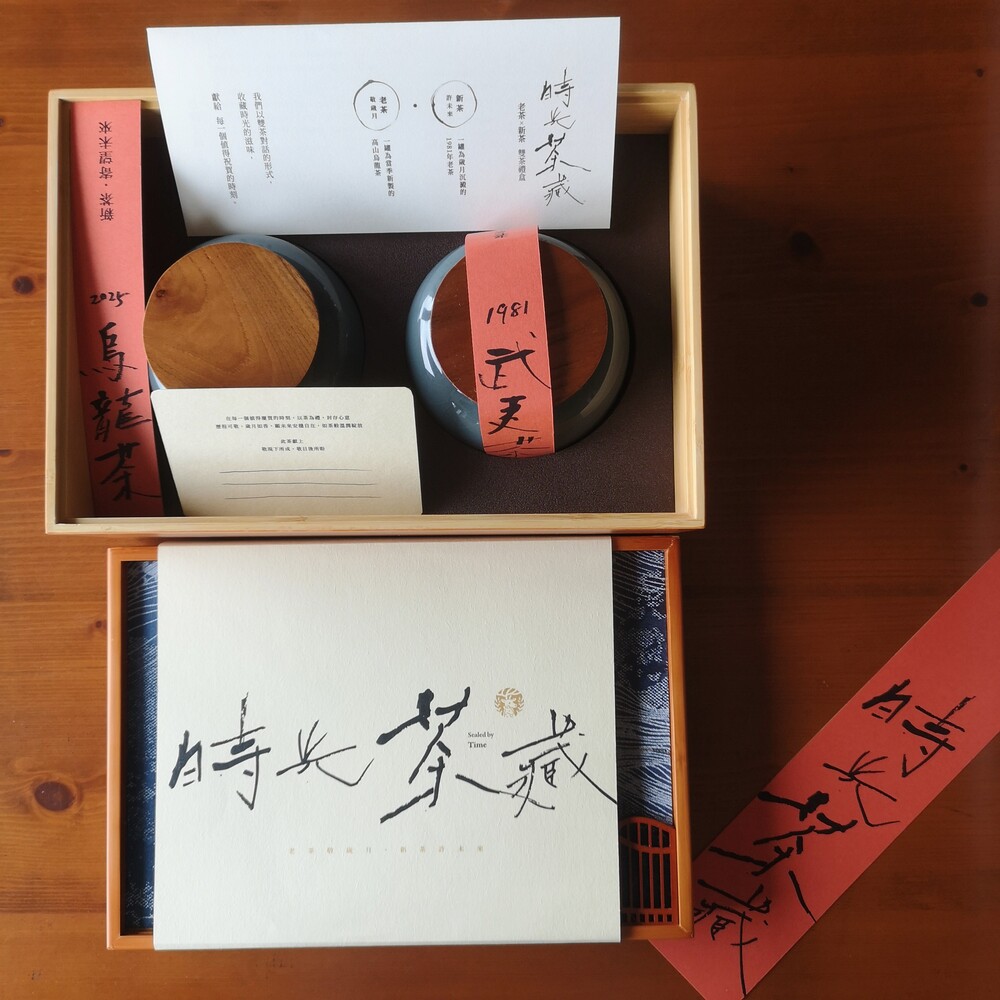 時光茶藏
老茶×新茶 雙茶禮盒
新茶
許未來
一罐為歲月沉澱的
1981年老茶
老茶
敬歲月
一罐為當季新製的
高山烏龍茶
我們以雙茶對話的形式，
收藏時光的滋味，
獻給 每一個值得祝賀的時刻。
新茶·寄望未來
2025
烏龍茶
1981
武夷茶
在每一個值得慶賀的時刻，以茶為禮，封存心意
此茶獻上
時光茶藏
Sealed by
Time
老茶敬歲月·新茶許未來
時光茶藏